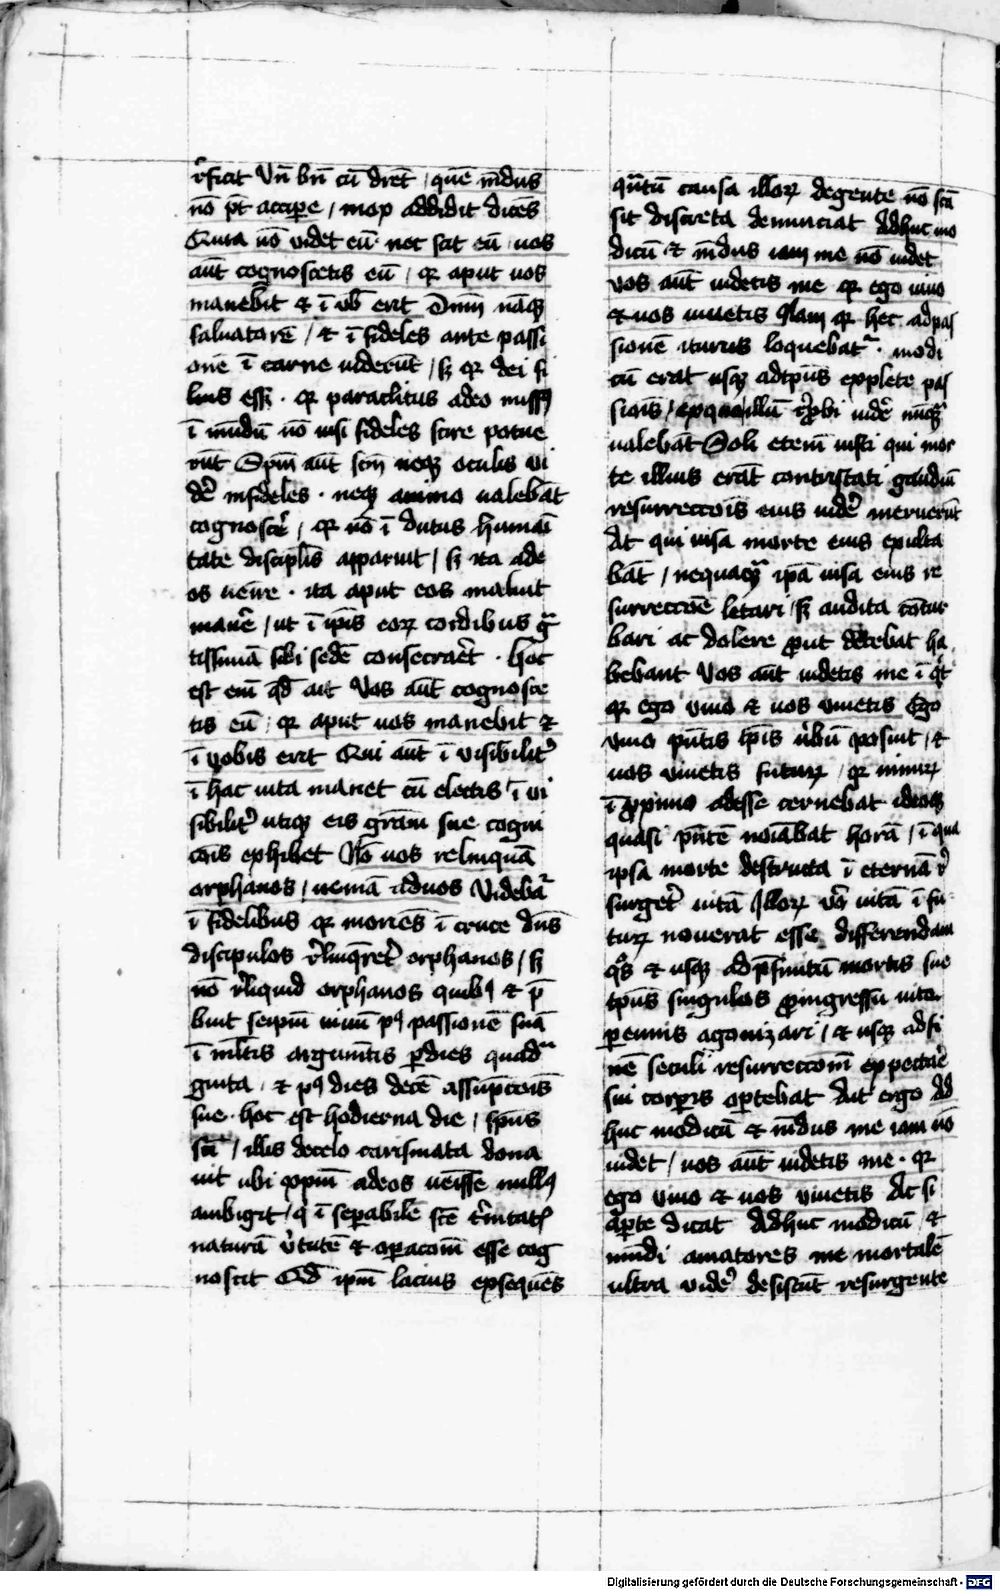 rͥficat Vn̄ bn̄ cū dicēt / quē mūdus
nō pt̄ accipe / mox addidit dicēs
Quia nō videt eū nec scit eū / uos
aūt cognoscetis eū / qꝛ aput uos
manebit ⁊ ī vob̄ erit Dnm̄ nāqꝫ
saluatorē / ⁊ īfideles ante passi
onē ī carne viderūt / sꝫ qꝛ dei fi
lius essꝫ · qꝛ paraclitus adeo missꝰ
ī mūdū nō nisi fideles scire potue
rūt Spm̄ aūt scm̄ neqꝫ oculis vi
dēr infideles · neqꝫ animo ualebāt
cognoscēr / qꝛ nō īdutus humāi
tate disciplis apparuit / sꝫ ita ade
os uenire · ita aput eos maluit
manēr / ut ī ip̄is eoꝝ cordibus gͣ
tissimā sibi sedē consecraēt · Hoc
est em̄ qd̄ ait Vos aūt cognosce
tis eū / qꝛ aput uos manebit ⁊
ī vobis erit Qui aūt īvisibilitʾ
ī hac uita manet cū electis īvi
sibilitʾ utiqꝫ eis gr̄am sue cogni
cōis exhibet Nō uos relinquā
orphanos / ueniā aduos Videbatʾ
īfidelibus qꝛ moriēs ī cruce dn̄s
discipulos rͥlinq̄retʾ orphanos / sꝫ
nō rͥliquid orphanos quibꝰ ⁊ p̄
buit seipm̄ uiuū pꝰ passionē suā
ī ml̄tis argumētis ꝑdies quadͣ
ginta / ⁊ pꝰ dies decē assūpcōis
sue · hoc est hodierna die / spūs
scī / illis decelo carismata dona
uit ubi ꝓpm̄ adeos uenisse nullꝰ
ambigit / qͥ īseꝑabilē scē tͥnitatꝭ
naturā vͥtutē ⁊ oꝑacōm̄ esse cog
noscit Qd̄ ipm̄ lacius exsequēs
qūtū causa illoꝝ degente nō scā
sit discreta denunciat Adhuc mo
dicū ⁊ mūdus iam me nō videt
vos aūt uidetis me qꝛ ego uiuo
⁊ uos uiuetis Nam qꝛ hec adpas
sionē iturus loquebatʾ · modi
cū erat usqꝫ adtp̄us explete pas
sionis / illū rͥprobi uidēr
ualebāt Soli etem̄ iusti qui mor
te illius erāt contristati gaudiū
resurreccōis eius uidēr meruerūt
At qui uisa morte eius exulta
bāt / nequaqͣ ipā uisa eius re
surreccōe letari / sꝫ audita cōtur
bari ac dolere ꝓut decebat ha
bebant Vos aūt uidetis me īqͥt
qꝛ ego viuo ⁊ uos viuetis Ego
viuo pn̄tis tp̄is vͥbū posuit / ⁊
uos viuetis futuꝝ / qꝛ nimiꝝ
īꝓximo adesse cernebat ideoqꝫ
quasi pn̄tē noīabat horā / ī qua
ipsa morte destructa ī eternā rͥ
surgetʾ uitā Illoꝝ vͦ uitā ī fu
tuꝝ nouerat esse differendam
qͦs ⁊ usqꝫ adp̄finitū mortis sue
tp̄us singulos ꝓingressu uite
perennis agonizari / ⁊ usqꝫ adfi
nē seculi resurreccōm̄ expectaēr
sui corꝑis oꝑtebat Ait ergo Ad
huc modicū ⁊ mūdus me iam nō
uidet / uos aūt uidetis me · qꝛ
ego viuo ⁊ uos viuetis Ac si
aꝑte dicat Adhuc modicū / ⁊
mūdi amatores me mortalē
ultra vidēr desistūt resurgente
Digitalisierung gefördert durch die Deutsche Forschungsgemeinschaft - DFG